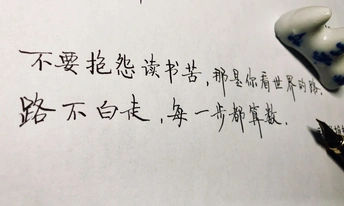 不要抱怨读书苦,那是你看世界的路.
路不白走,每一步都算数.